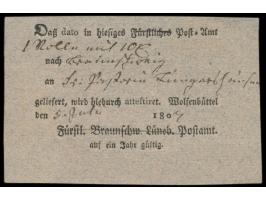 Daß dato in hiesiges Fürstliches Post-Amt
1 Rolle mit 10
nach Braunschweig
an
geliefert, wird hiedurch attestiret. Wolfenbüttel
den 180
Fürstl. Braunschw. Lüneb. Postamt.
auf ein Jahr gültig.